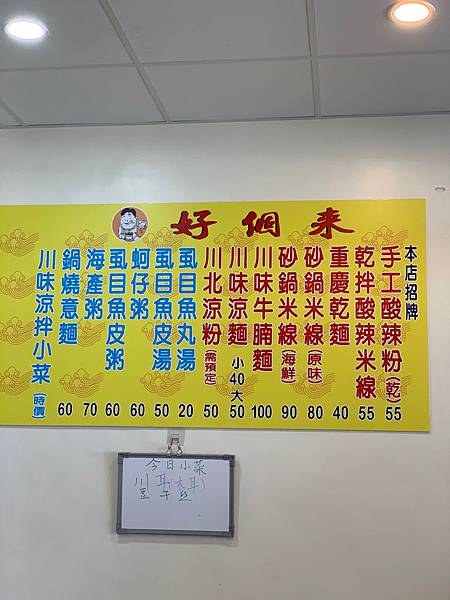 好個來
本店招牌
手工酸辣粉(乾) 55
乾拌酸辣米線 55
重慶乾麵 40
砂鍋米線(原味) 80
砂鍋米線(海鮮) 90
川味牛腩麵 100
川味涼麵 小40大 50
川北涼粉(需預定) 50
虱目魚丸湯 20
虱目魚皮湯 50
蚵仔粥 60
虱目魚皮粥 60
海產粥 70
鍋燒意麵 60
川味涼拌小菜(時價)
今日小菜
川耳(木耳)
豆干絲